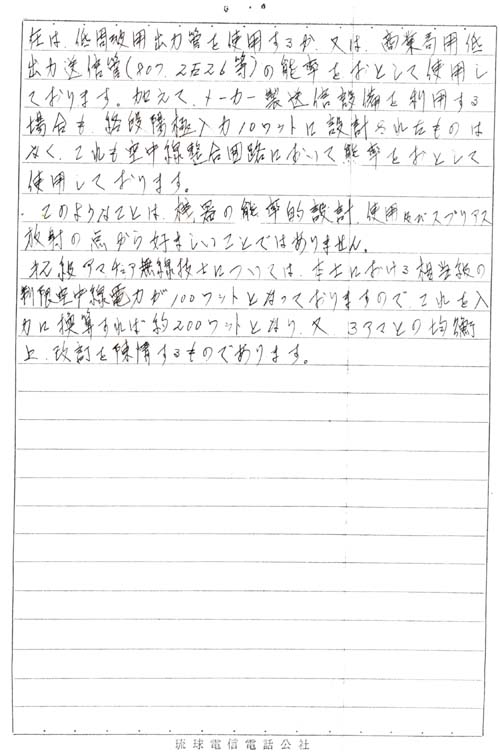 在は、低周波用出力管を使用するか、又は、商業局用低
出力送信管(807、2E26等)の能率をおとして使用し
ております。加えて、メーカー製送信設備を利用する
場合も、終段陽極入力10ワットに設計されたものは
なく、これも空中線整合回路において能率をおとして
使用しております。
このようなことは、機器の能率的設計、使用及びスプリアス
放射の点から好ましいことではありません。
級アマチュア無線技士については、本土における相当級の
制限空中線電力が100ワットとなっておりますので、これを入
力に換算すれば約200ワットとなり、又、3アマとの均衡
上、改訂を陳情するものであります。
琉球電信電話公社